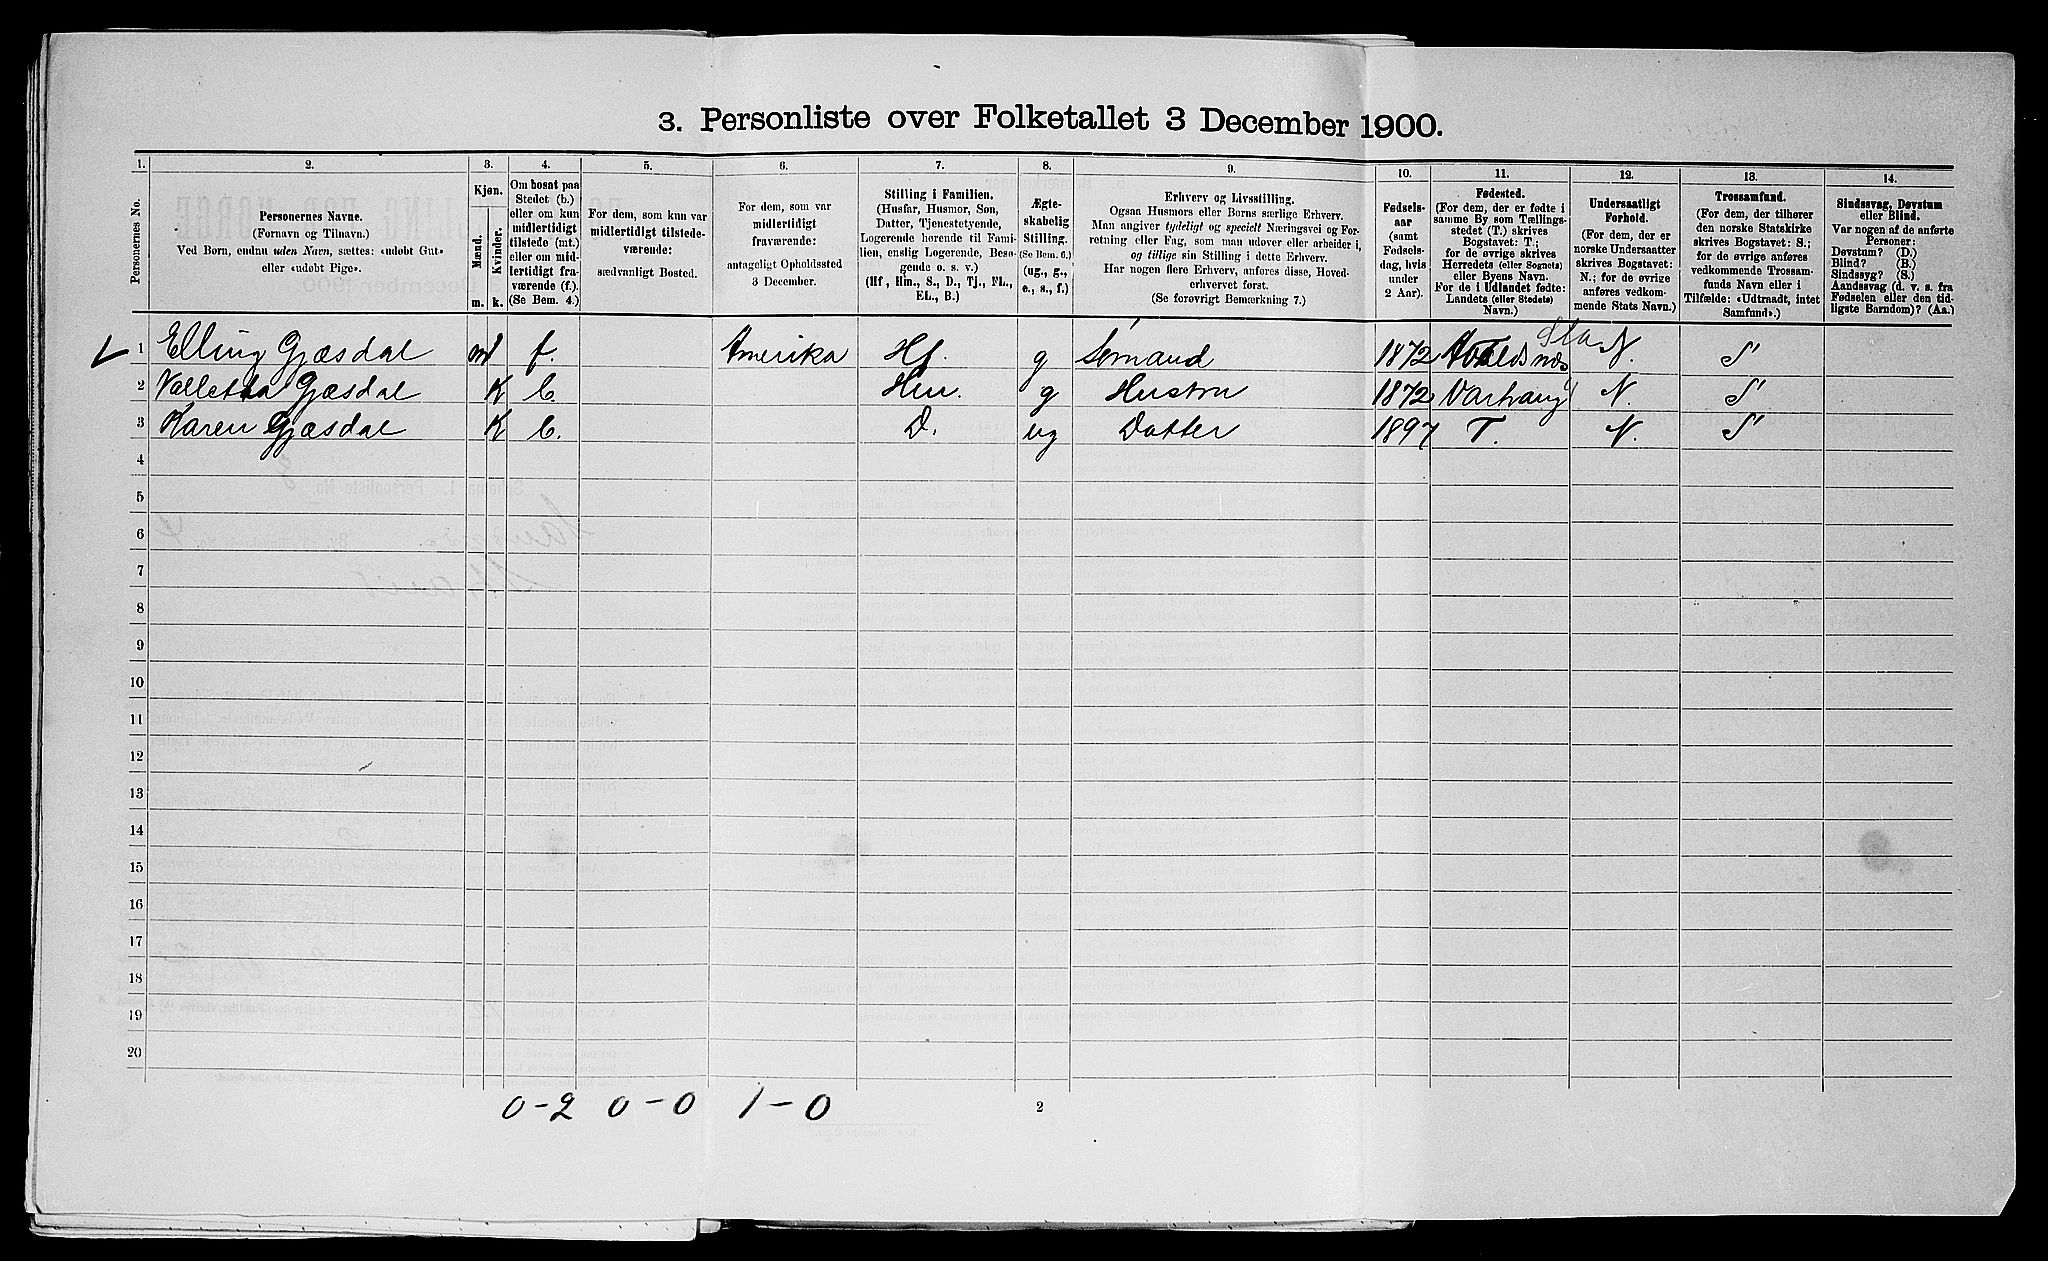 3. Personliste over Folketallet 3 December 1900.
1. 2. 3. 4. 5. 6. 7. 8. 9. 10. 11. 12. 13. 14.
Personernes No.
Personernes Navne.
(Fornavn og Tilnavn.)
Ved Børn, endnu uden Navn, sættes: «udøbt Gut»
eller «udøbt Pige».
Kjøn.
Mænd.
Kvinder.
m. k.
Om bosat paa
Stedet (b.)
eller om kun
midlertidigt
tilstede (mt.)
eller om mid-
lertidigt fra-
værende (f.).
(Se Bem. 4.)
For dem, som kun var
midlertidigt tilstede-
værende:
sædvanligt Bosted.
For dem, som var
midlertidigt
fraværende:
antageligt Opholdssted
3 December.
Stilling i Familien.
(Husfar, Husmor, Søn,
Datter, Tjenestetyende,
Logerende hørende til Fami-
lien, enslig Logerende, Besø-
gende o. s. v.)
(Hf, Hm., S., D., Tj., FL.,
EL., B.)
Ægte-
skabelig
Stilling.
(Se Bem. 6.)
(ug., g.,
e., s., f.)
Erhverv og Livsstilling.
Ogsaa Husmors eller Børns særlige Erhverv.
Man angiver tydeligt og specielt Næringsvei og For-
retning eller Fag, som man udover eller arbeider i,
og tillige sin Stilling i dette Erhverv.
Har nogen flere Erhverv, anføres disse, Hoved-
erhvervet først.
(Se forøvrigt Bemærkning 7.)
Fødsels-
aar
(samt
Fødsels-
dag, hvis
under
2 Aar).
Fødested.
(For dem, der er fødte i
samme By som Tællings-
stedet (T.) skrives
Bogstavet: T.;
for de øvrige skrives
Herredets (eller Sognets)
eller Byens Navn.
For de i Udlandet fødte:
Landets (eller Stedets)
Navn.)
Undersaatligt
Forhold.
(For dem, der er
norske Undersaatter
skrives Bogstavet:
N.; for de øvrige
anføres vedkom-
mende Stats Navn.)
Trossamfund.
(For dem, der tilhører
den norske Statskirke
skrives Bogstavet: S.;
for de øvrige anføres
vedkommende Trossam-
funds Navn eller i
Tilfælde: «Udtraadt, intet
Samfund».)
Sindssvag, Døvstum
eller Blind.
Var nogen af de anførte
Personer:
Døvstum? (D.)
Blind? (B.)
Sindssyg? (S.)
Aandssvag (d. v. s. fra
Fødselen eller den tid-
ligste Barndom)? (Aa.)
1 Elling Gjæsdal m f. Amerika Hf. g Sømand 1872 Avaldsnæs Sta N. S
2 Valletta Gjæsdal K b. Hm. g Hustru 1872 Varhaug N. S
3 Karen Gjæsdal K b. D. ug Datter 1897 T. N. S
4
5
6
7
8
9
10
11
12
13
14
15
16
17
18
19
20
0-2 0-0 1-0
2